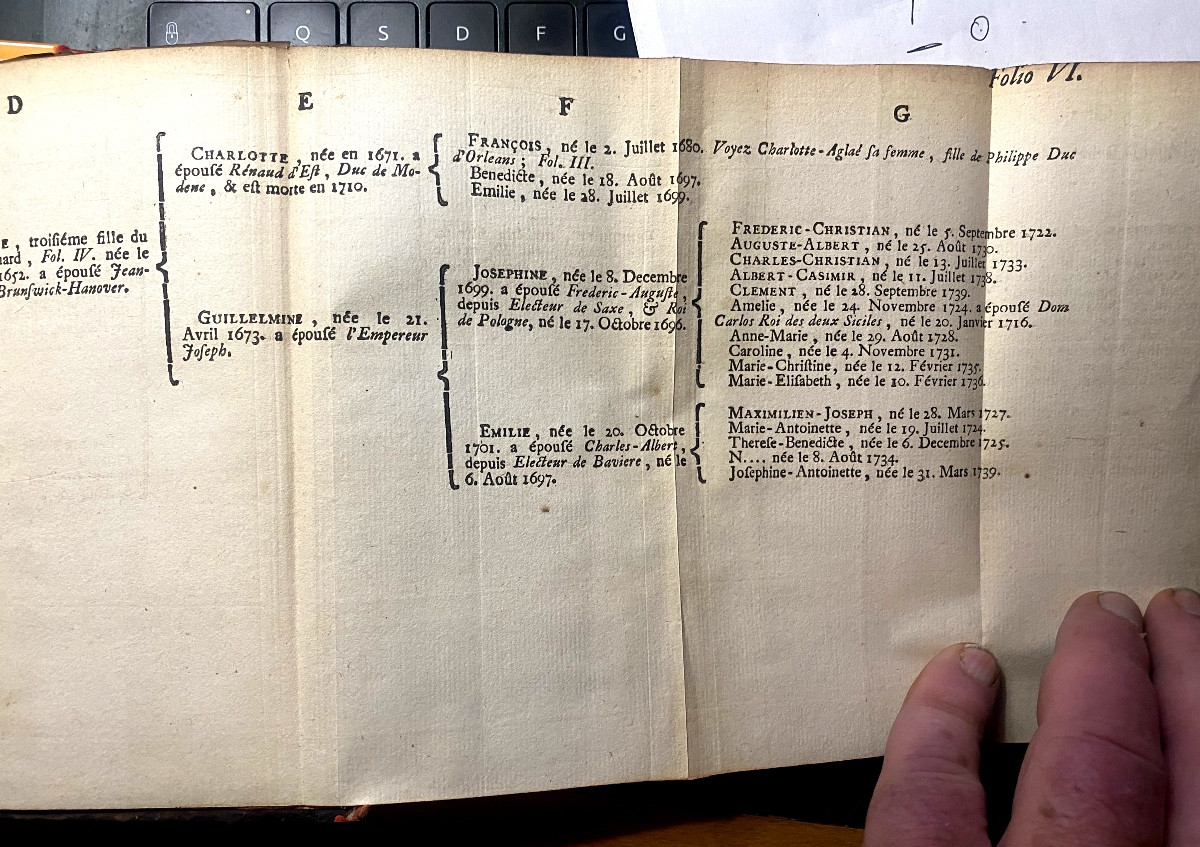 Q S D F G
Folio VI.
D E F G
E, troisiéme fille du
ard, Fol. IV. née le
1652. a épousé Jean-
Brunswick-Hanover.
CHARLOTTE, née en 1671. a
épousé Rénaud d'Est, Duc de Mo-
dene, & est morte en 1710.
GUILLELMINE, née le 21.
Avril 1673. a épousé l'Empereur
Joseph.
FRANÇOIS, né le 2. Juillet 1680. Voyez Charlotte-Aglaé sa femme, fille de Philippe Duc
d'Orleans; Fol. III.
Benedicte, née le 18. Août 1697.
Emilie, née le 28. Juillet 1699.
JOSEPHINE, née le 8. Decembre
1699. a épousé Frederic-Auguste,
depuis Electeur de Saxe, & Roi
de Pologne, né le 17. Octobre 1696.
EMILIE, née le 20. Octobre
1701. a épousé Charles-Albert,
depuis Electeur de Baviere, né le
6. Août 1697.
FREDERIC-CHRISTIAN, né le 5. Septembre 1722.
AUGUSTE-ALBERT, né le 25. Août 1730.
CHARLES-CHRISTIAN, né le 13. Juillet 1733.
ALBERT-CASIMIR, né le 11. Juillet 1738.
CLEMENT, né le 28. Septembre 1739.
Amelie, née le 24. Novembre 1724. a épousé Dom
Carlos Roi des deux Siciles, né le 20. Janvier 1716.
Anne-Marie, née le 29. Août 1728.
Caroline, née le 4. Novembre 1731.
Marie-Christine, née le 12. Février 1735.
Marie-Elisabeth, née le 10. Février 1736.
MAXIMILIEN-JOSEPH, né le 28. Mars 1727.
Marie-Antoinette, née le 19. Juillet 1724.
Therese-Benedicte, née le 6. Decembre 1725.
N.... née le 8. Août 1734.
Josephine-Antoinette, née le 31. Mars 1739.